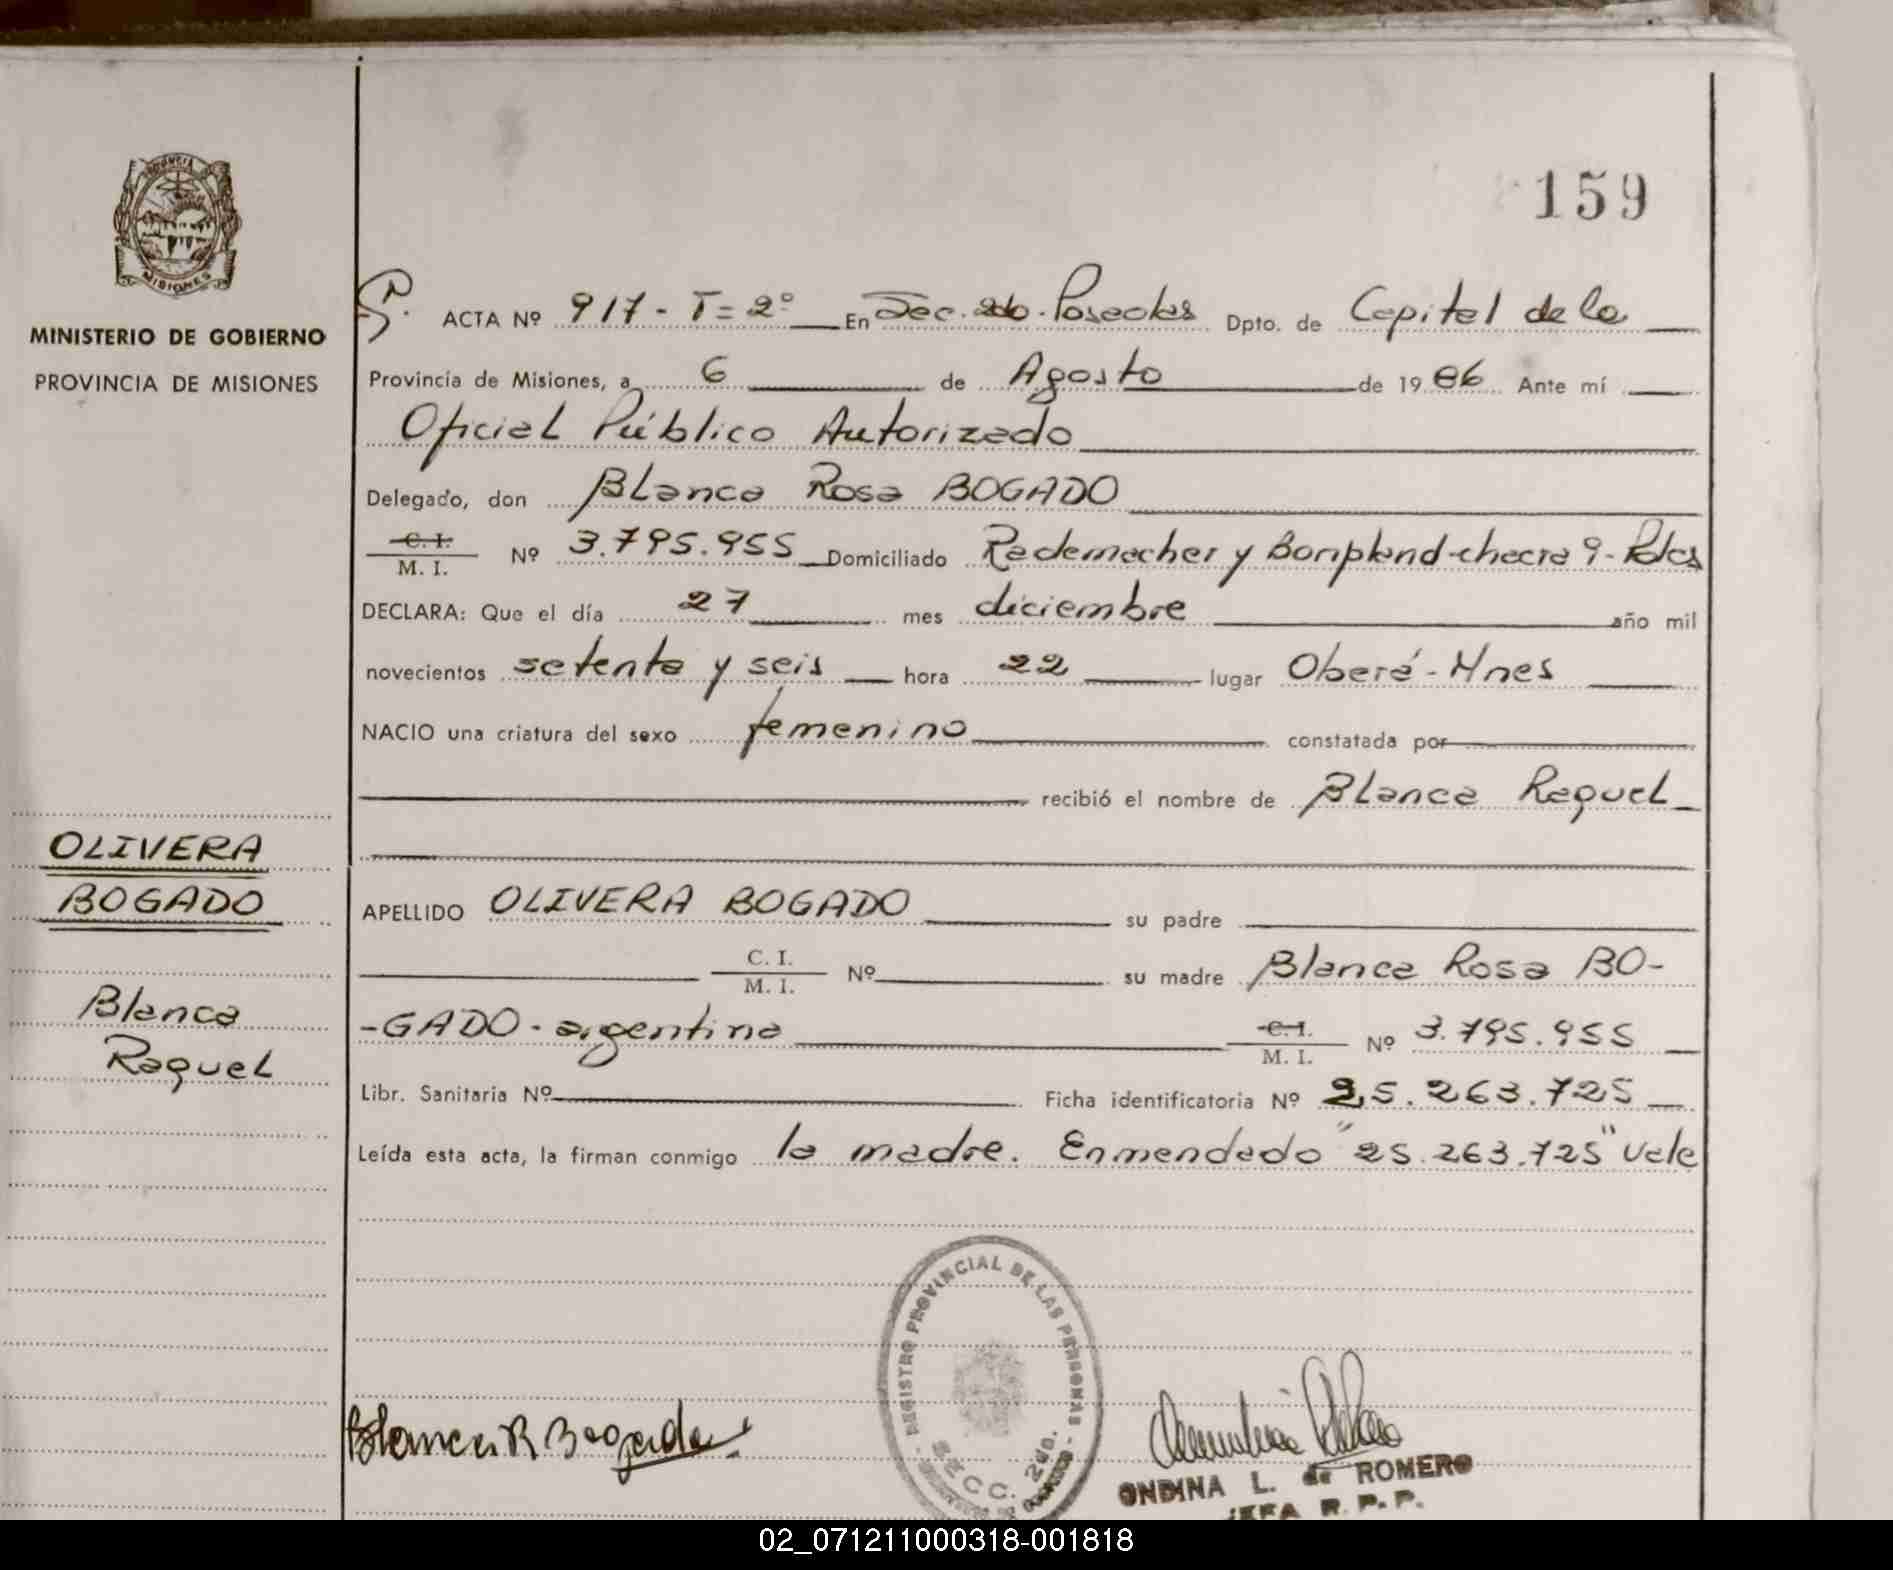 159
PROVINCIA
MISIONES
MINISTERIO DE GOBIERNO
PROVINCIA DE MISIONES
ACTA Nº 917 - T=2º En Sec. 2do. Posadas Dpto. de Capital de la
Provincia de Misiones, a 6 de Agosto de 1986 Ante mí
Oficial Público Autorizado
Delegado, don Blanca Rosa BOGADO
C. I. M. I. Nº 3.795.955 Domiciliado Rademacher y Bonpland-chacra 9-Pdas
DECLARA: Que el día 27 mes diciembre año mil
novecientos setenta y seis hora 22 lugar Oberá-Mnes
NACIO una criatura del sexo femenino constatada por
recibió el nombre de Blanca Raquel
OLIVERA
BOGADO
Blanca
Raquel
APELLIDO OLIVERA BOGADO su padre
C. I. M. I. Nº su madre Blanca Rosa BO-
-GADO-argentina C. I. M. I. Nº 3.795.955
Libr. Sanitaria Nº Ficha identificatoria Nº 25.263.725
Leída esta acta, la firman conmigo la madre. Enmendado "25.263.725" Vale
REGISTRO PROVINCIAL DE LAS PERSONAS
SECC. 2da.
Blanca R Bogado
ONDINA L. de ROMERO
JEFA R. P. P.
02_071211000318-001818